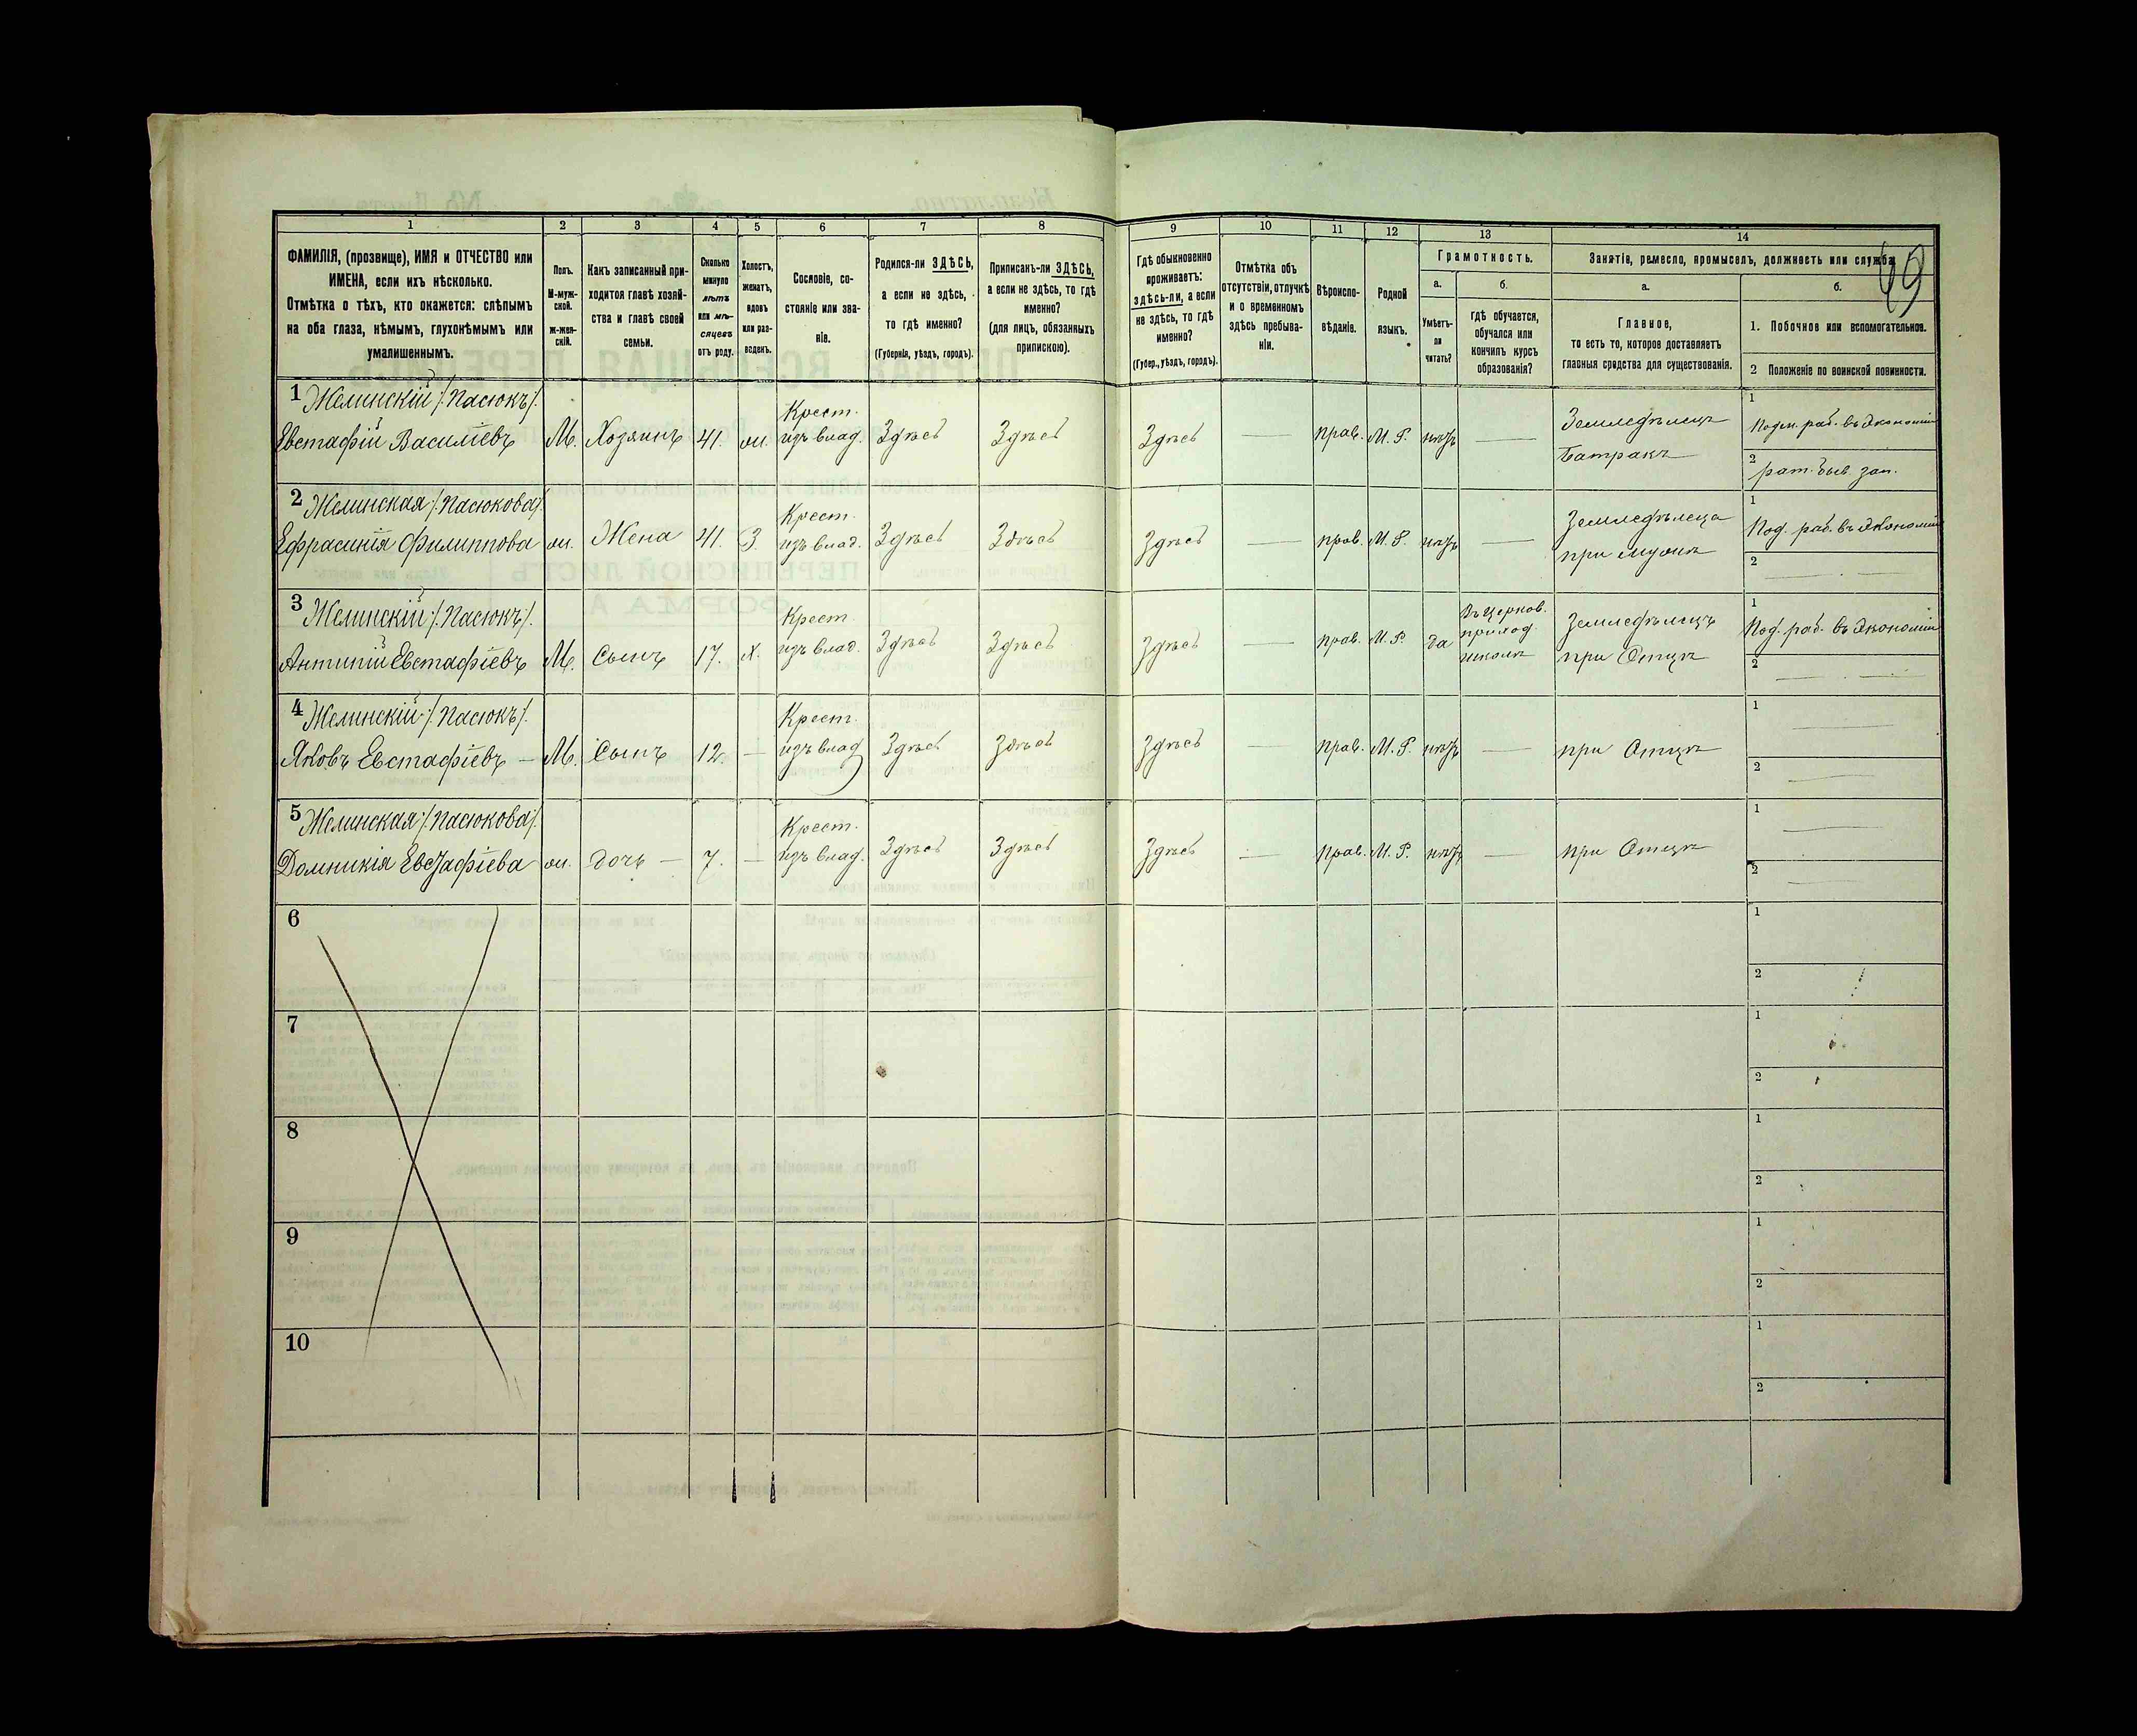 49
1
2
3
4
5
6
7
8
9
10
11
12
13
14
ФАМИЛІЯ, (прозвище), ИМЯ и ОТЧЕСТВО или
ИМЕНА, если ихъ нѣсколько.
Отмѣтка о тѣхъ, кто окажется: слѣпымъ
на оба глаза, нѣмымъ, глухонѣмымъ или
умалишеннымъ.
Полъ.
М-муж-
ской.
ж-жен-
скій.
Какъ записанный при-
ходится главѣ хозяй-
ства и главѣ своей
семьи.
Сколько
минуло
лѣтъ
или мѣ-
сяцевъ
отъ роду.
Холостъ,
женатъ,
вдовъ
или раз-
веденъ.
Сословіе, со-
стояніе или зва-
ніе.
Родился-ли ЗДѢСЬ,
а если не здѣсь,
то гдѣ именно?
(Губернія, уѣздъ, городъ).
Приписанъ-ли ЗДѢСЬ,
а если не здѣсь, то гдѣ
именно?
(для лицъ, обязанныхъ
припискою).
Гдѣ обыкновенно
проживаетъ:
здѣсь-ли, а если
не здѣсь, то гдѣ
именно?
(Губер., уѣздъ, городъ).
Отмѣтка объ
отсутствіи, отлучкѣ
и о временномъ
здѣсь пребыва-
ніи.
Вѣроиспо-
вѣданіе.
Родной
языкъ.
Грамотность.
а.
Умѣетъ-
ли
читать?
б.
гдѣ обучается,
обучался или
кончилъ курсъ
образованія?
Занятіе, ремесло, промыселъ, должность или служба.
а.
Главное,
то есть то, которое доставляетъ
главныя средства для существованія.
б.
1. Побочное или вспомогательное.
2 Положеніе по воинской повинности.
1 Желинскій /: Пасюкъ:/.
Евстафій Василіевъ М. Хозяинъ 41. ж. Крест.
изъ влад. Здѣсь Здѣсь Здѣсь — прав. М. Р. нѣтъ — Земледѣлецъ
Батракъ
1 Подён. раб. въ Экономіи
2 рат. бывш. зап.
2 Желинская /: Пасюкова:/
Ефрасинія Филиппова ж. Жена 41. З. Крест.
изъ влад. Здѣсь Здѣсь Здѣсь — прав. М. Р. нѣтъ — Земледѣлица
при мужѣ
1 Под. раб. въ Экономіи
2 — —
3 Желинскій /: Пасюкъ:/.
Антипій Евстафіевъ М. Сынъ 17. Х. Крест
изъ влад. Здѣсь Здѣсь Здѣсь — прав. М. Р. да Въ церков.
приход.
школѣ
Земледѣлецъ
при Отцѣ
1 Под. раб. въ Экономіи
2 — —
4 Желинскій /: Пасюкъ:/.
Яковъ Евстафіевъ — М. Сынъ 12. — Крест.
изъ влад Здѣсь Здѣсь Здѣсь — прав. М. Р. нѣтъ — при Отцѣ
1 —
2 —
5 Желинская /: Пасюкова:/.
Домникія Евстафіева ж. дочь — 7. — Крест.
изъ влад. Здѣсь Здѣсь Здѣсь — прав. М. Р. нѣтъ — при Отцѣ
1 —
2 —
6
1
2
7
1
2
8
1
2
9
1
2
10
1
2